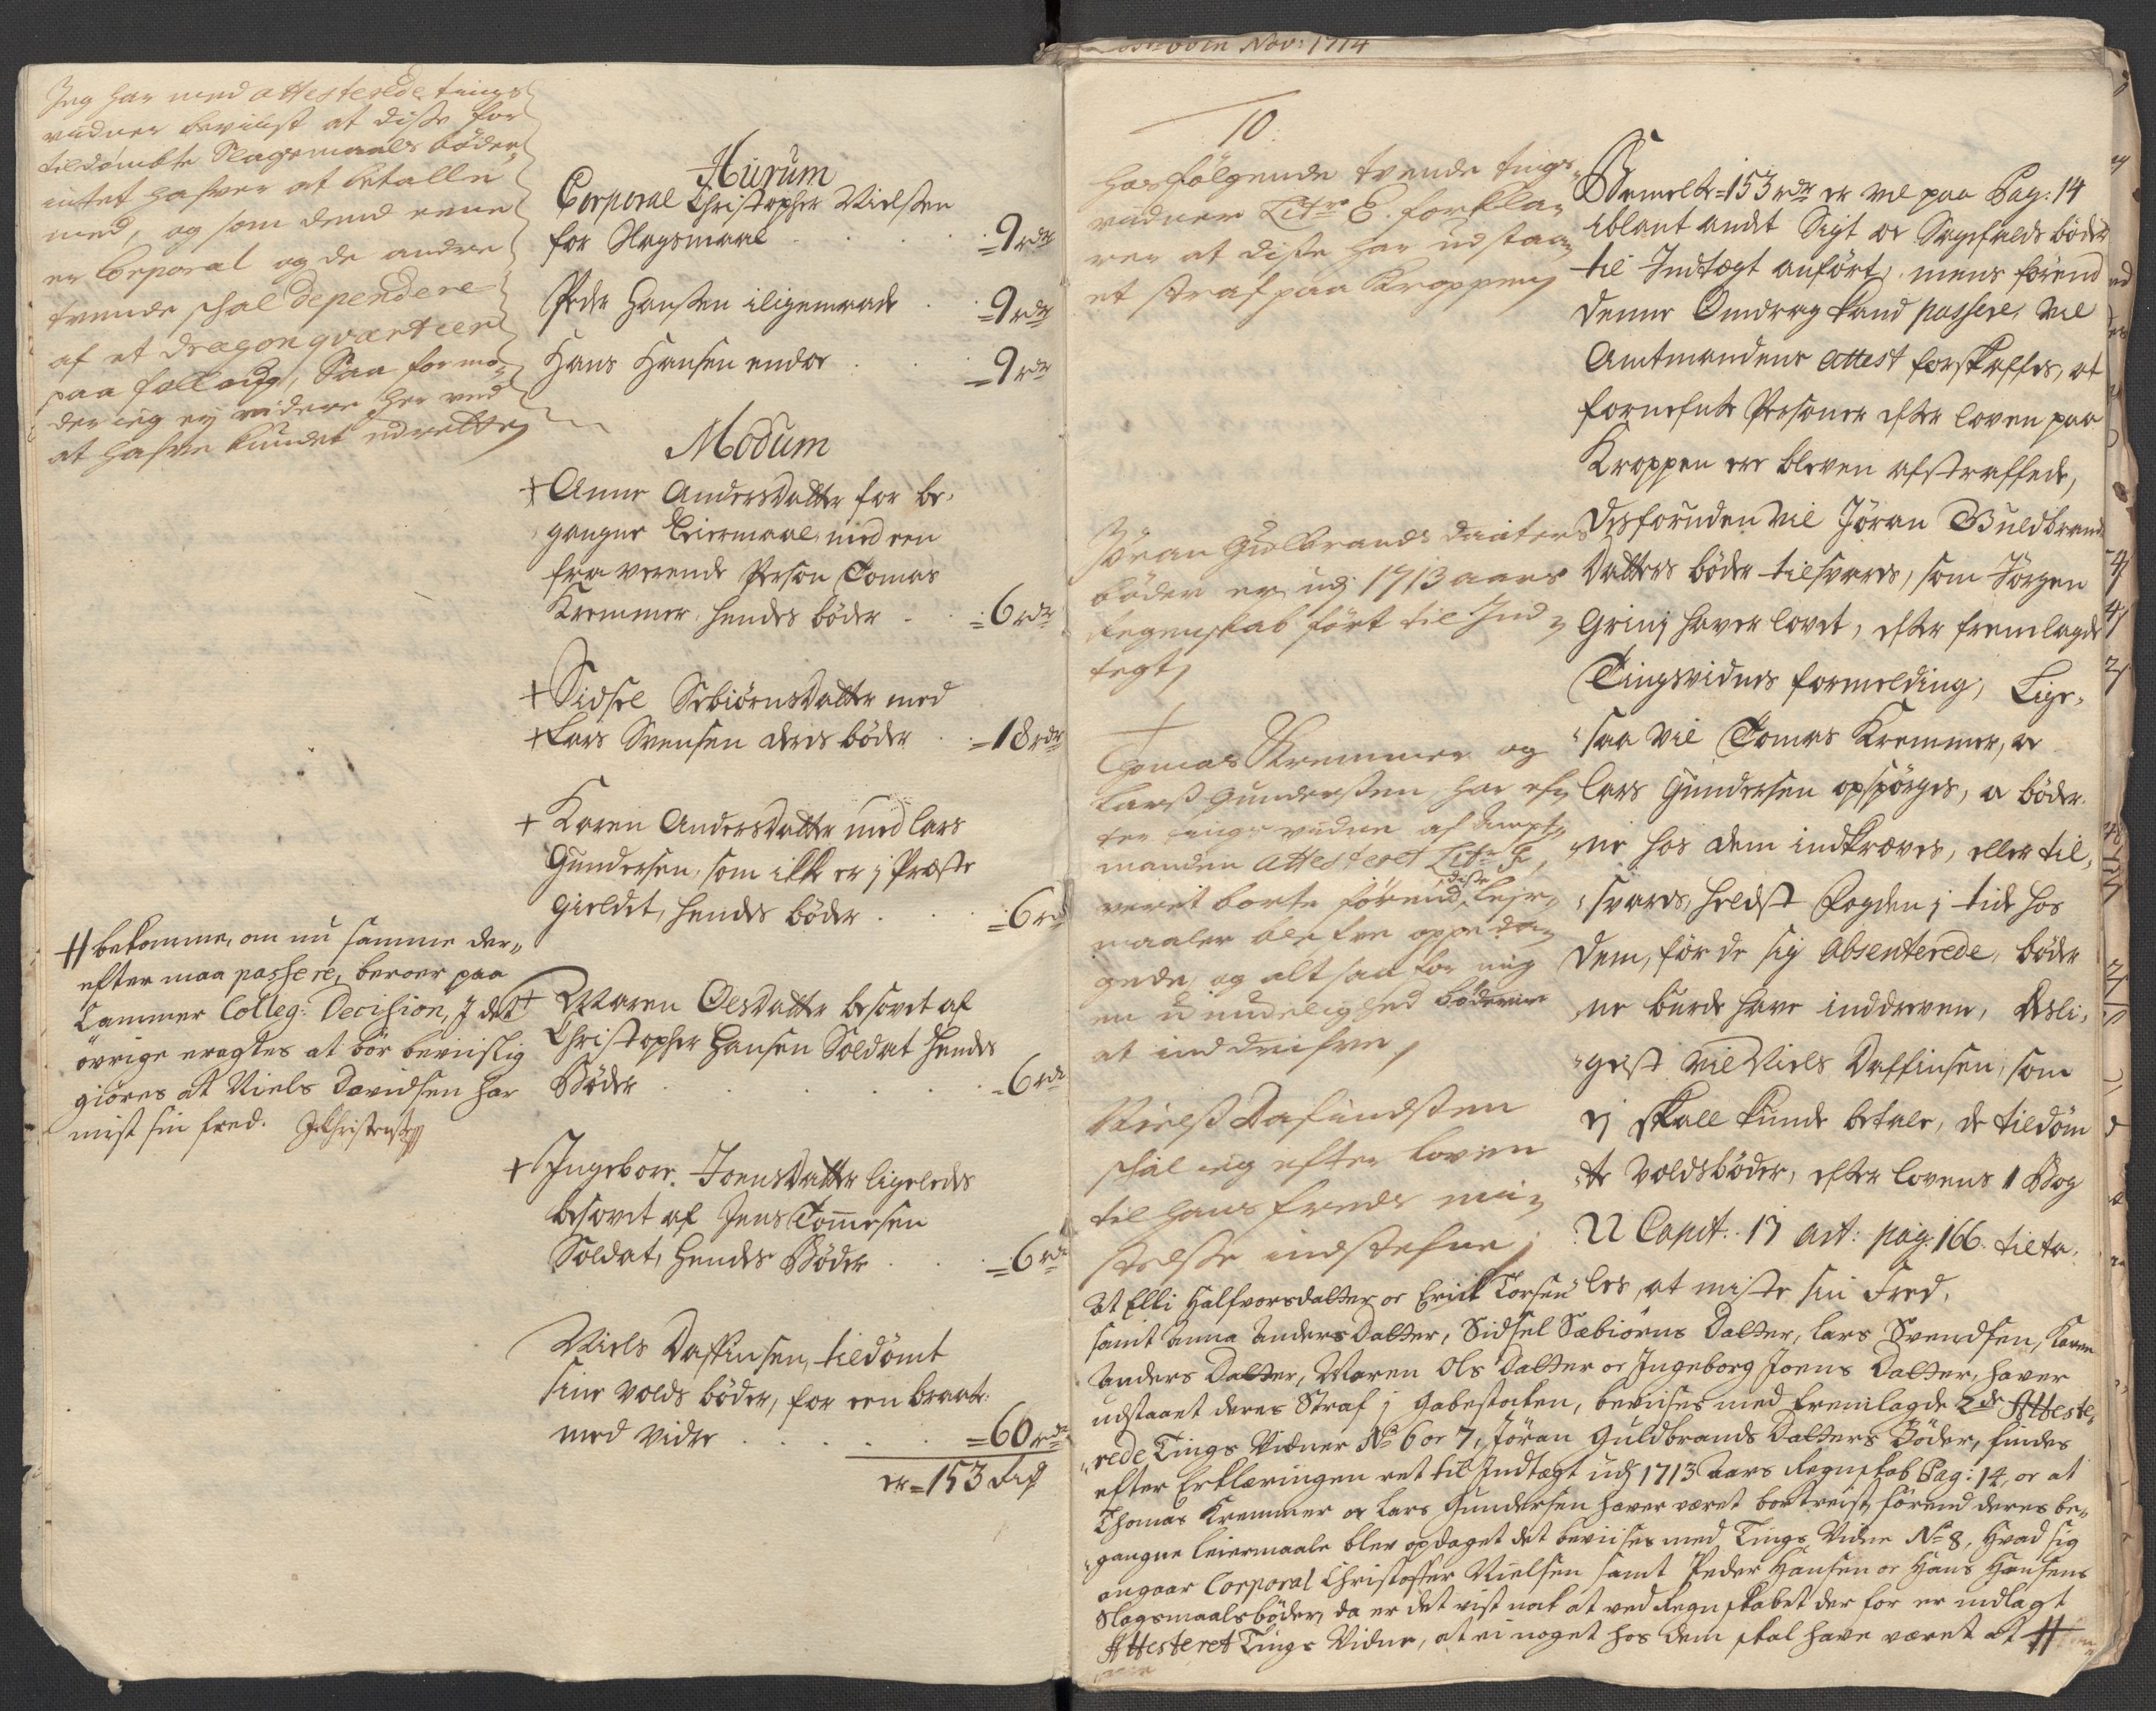 Jeg har med attesterede tings
vidner beviist at disse for
tildømbte Slagsmaals bøder
intet hafver at betalle
med, og som dend eene
er Corporal og de andre
tvende schal dependere
af et dragon qvarteer
paa
der jeg ej videre her ved
at hafve kundet udrette
Hurum
Corporal Christopher Nielssen
for Slagsmaal . . . =9 rdr
Peder Hanssen iligemaade . . =9 rdr
Hans Hansen endor . . =9 rdr
Modum
+ Anne Andersdatter for be-
gangne Leiermaal, med een
fra verende Person Tomas
Kremmer, hendes bøder . . =6 rdr
+ Sidsel Sebiørnsdatter med
+ Lars Svensen deris bøder . . =18 rdr
+ Karen Andersdatter med Lars
Gundersen, som ikke er j Præste
gieldet, hendes bøder . . . =6 rdr
+ Maren Olsdatter besovet af
Christopher Hansen Soldat hendes
Bøder . . . . =6 rdr
+ Ingebor Joensdatter ligeledes
besovet af Jens Tommesen
Soldat, hendes Bøder . . . =6 rdr
Niels Daffinsen, tildømt
sine volds bøder, for een
med vider . . . . =60 rdr
er =153 Rdr
# bekomme, om nu samme der-
efter maa passere, beroer paa
Cammer Colleg: Decision, J det
øvrige eragtes at bør beviislig
giøres at Niels Davidsen har
mist sin fred. JChristensen
Nov: 1714
10.
Har følgende tvende tings-
vidner Litr: E. forkla-
rer at disse har udstaa-
et straf paa Kroppen,
Jøran Gulbrands daatters
bøder er udj 1713 aars
Regenskab ført til Ind-
tegt,
+
Thomas Kremmer og
Larss Gunderssen har ef-
ter tings vidne af Ampt-
manden attesteret Litr: F,
veret borte førend disse leje-
maaler ble fve oppeda-
gede, og alt saa for mig
en umuelighed bøderne
at inddrifve,
Nielss Dafindssen
schal jeg efter Loven
til hans freds mi-
stelsse indstefne,
Bemelte =153 rdr er vel paa Pag: 14
iblant andet Sigt oc Sagefalds bøder
til Indtægt anført, mens førend
denne Omdrag kand passere, vil
Amtmandens attest forskaffes, at
fornefnte Personer efter loven paa
Kroppen ere bleven afstraffede,
Desforuden vil Jøran Guldbrands
Datters bøder tilsvares, som Jørgen
Grinj haver lovet, efter fremlagde
Tingsvidnes formelding, Lige-
saa vil Tomas Kremmer, oc
Lars Gundersen opspørges, oc bøder-
ne hos dem indkræves, eller til-
svares, heldst Fogden j tide hos
dem, før de sig absenterede, bøder
ne burde have inddreven, Desli-
gest vil Niels Daffinsen, som
ej skall kunde betale, de tildøm
te Voldsbøder, efter lovens 1 Bog
22 Capit. 13 art: pag: 166. tilta-
les, at miste sin Fred.
At Elli Halfvorsdatter oc Erick Torsen
samt Anna Anders Datter, Sidsel Sæbiørns Datter, Lars Svendsen, Karen
Anders Datter, Maren Ols Datter oc Ingeborg Joens Datter, haver
udstaaet deres Straf j Gabestocken, beviises med fremlagde 2de Atteste-
rede Tings Vidner No 6 oc 7, Jøran Guldbrands Datters Bøder, findes
efter Erklæringen ret til Indtægt udj 1713 Aars Regnskab Pag: 14, oc at
Thomas Kremmer oc Lars Gundersen haver været bortreist, førend deres be-
gangne leiermaale blev opdaget det beviises med Tings Vidne No 8, Hvad sig
angaar Corporal Christoffer Nielsen samt Peder Hansen oc Hans Hansens
Slagsmaalsbøder, da er det vist nok at ved Regnskabet der for er indlagt
Attesteret Tings Vidne, at ei noget hos dem skal have været at #